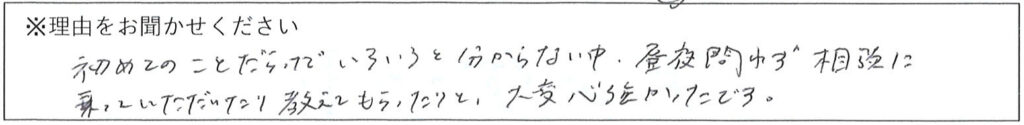 ※理由をお聞かせください
初めてのことだらけでいろいろと分からない中、昼夜問わず相談に
乗っていただいたり教えてもらったりと、大変心強かったです。